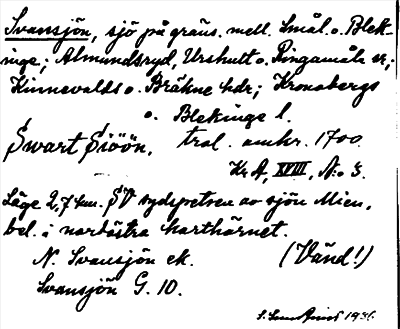 Svansjön, sjö på gräns. mell. Smål. o. Blek-
inge; Almundsryd, Urshult o. Ringamåla sr;
Kinnevalds o. Bräkne hdr; Kronobergs
o. Blekinge l.
Swart Siöön, trol. omkr. 1700.
Kr. A, XVIII, N:o 3.
Läge 2,7 km. SV sydspetsen av sjön Mien,
bel. i nordöstra karthörnet.
N. Svansjön ek. (Vänd!)
Svansjön G. 10.
1936